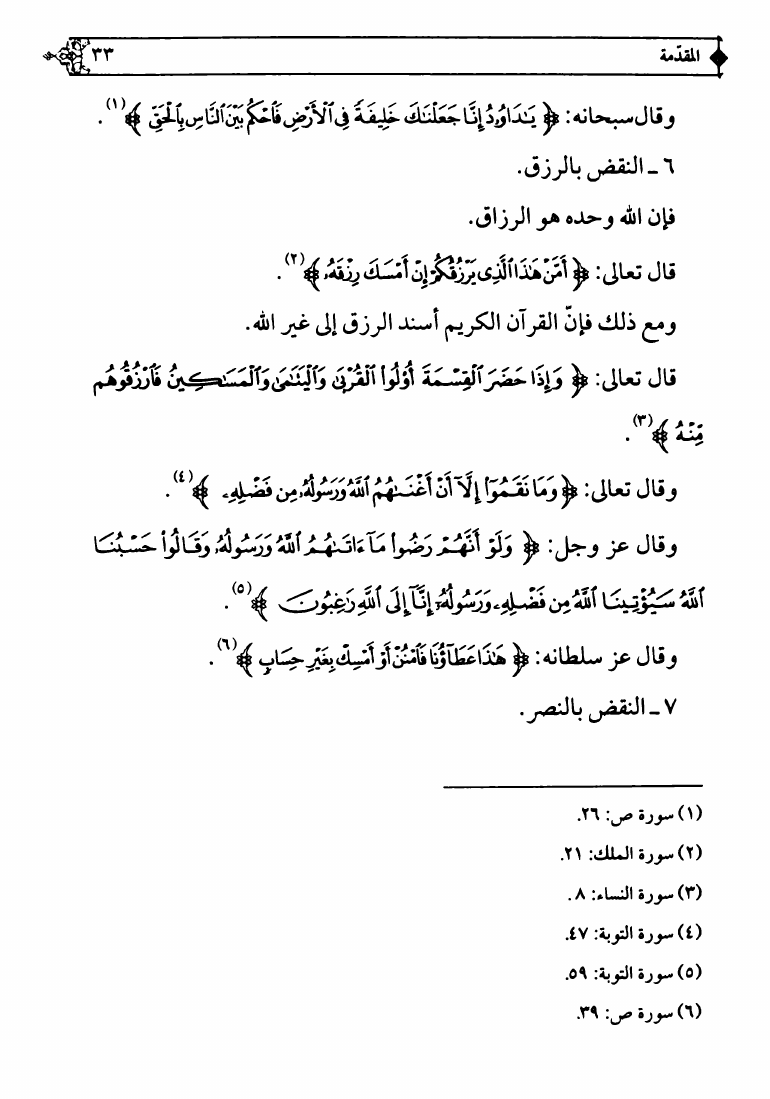 المقدّمة ٣٣
وقال سبحانه: ﴿ يَٰدَاوُۥدُ إِنَّا جَعَلْنَٰكَ خَلِيفَةً فِى ٱلْأَرْضِ فَٱحْكُم بَيْنَ ٱلنَّاسِ بِٱلْحَقِّ ﴾(١).
٦ ـ النقض بالرزق.
فإن الله وحده هو الرزاق.
قال تعالى: ﴿ أَمَّنْ هَٰذَا ٱلَّذِى يَرْزُقُكُمْ إِنْ أَمْسَكَ رِزْقَهُۥ ﴾(٢).
ومع ذلك فإنّ القرآن الكريم أسند الرزق إلى غير الله.
قال تعالى: ﴿ وَإِذَا حَضَرَ ٱلْقِسْمَةَ أُوْلُوا۟ ٱلْقُرْبَىٰ وَٱلْيَتَٰمَىٰ وَٱلْمَسَٰكِينُ فَٱرْزُقُوهُم
مِّنْهُ ﴾(٣).
وقال تعالى: ﴿ وَمَا نَقَمُوٓا۟ إِلَّآ أَنْ أَغْنَىٰهُمُ ٱللَّهُ وَرَسُولُهُۥ مِن فَضْلِهِۦ ﴾(٤).
وقال عز وجل: ﴿ وَلَوْ أَنَّهُمْ رَضُوا۟ مَآ ءَاتَىٰهُمُ ٱللَّهُ وَرَسُولُهُۥ وَقَالُوا۟ حَسْبُنَا
ٱللَّهُ سَيُؤْتِينَا ٱللَّهُ مِن فَضْلِهِۦ وَرَسُولُهُۥٓ إِنَّآ إِلَى ٱللَّهِ رَٰغِبُونَ ﴾(٥).
وقال عز سلطانه: ﴿ هَٰذَا عَطَآؤُنَا فَٱمْنُنْ أَوْ أَمْسِكْ بِغَيْرِ حِسَابٍ ﴾(٦).
٧ ـ النقض بالنصر.
(١) سورة ص: ٢٦.
(٢) سورة الملك: ٢١.
(٣) سورة النساء: ٨.
(٤) سورة التوبة: ٤٧.
(٥) سورة التوبة: ٥٩.
(٦) سورة ص: ٣٩.